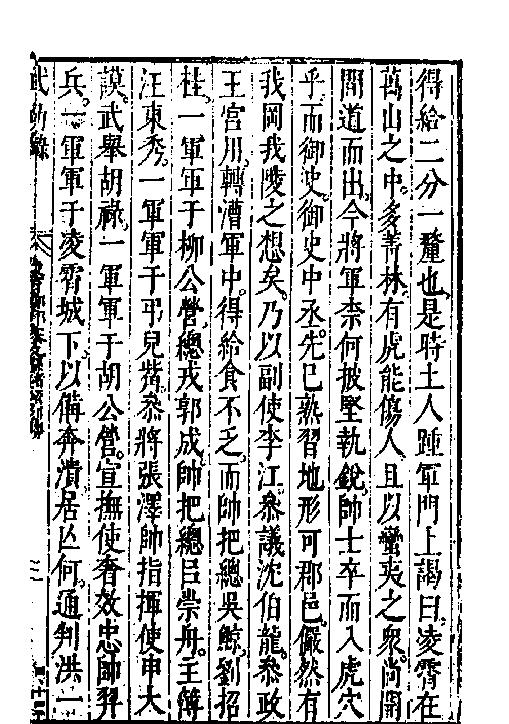 得給二分一釐也是時土人踵軍門上謁曰凌霄在
萬山之中多菁林有虎能傷人且以蠻夷之衆尚開
間道而出今將軍柰何披堅執銳帥士卒而入虎穴
乎而御史御史中丞先已熟習地形可郡邑儼然有
我岡我陵之想矣乃以副使李江叅議沈伯龍叅政
王宮用轉漕軍中得給食不乏而帥把總吳鯨劉招
桂一軍軍于柳公營總戎郭成帥把總吕崇舟王簿
汪東秀一軍軍于弔兒觜叅將張澤帥指揮使申大
謨武舉胡祿一軍軍于胡公營宣撫使奢效忠帥羿
兵一軍軍于凌霄城下以備奔潰居亾何通判洪一
武功錄